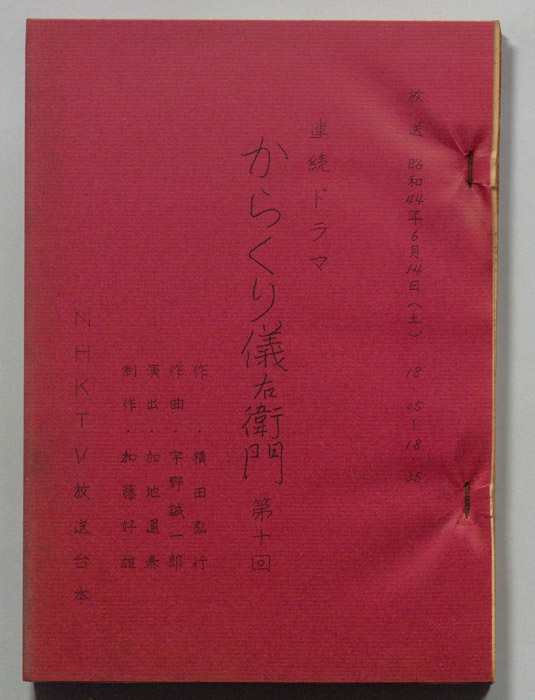 放送 昭和44年6月14日(土) 18:05~18:35
連続ドラマ
からくり儀右衛門 第十回
作・横田弘行
作曲・宇野誠一郎
演出・加地通泰
制作・加藤好雄
NHKTV放送台本